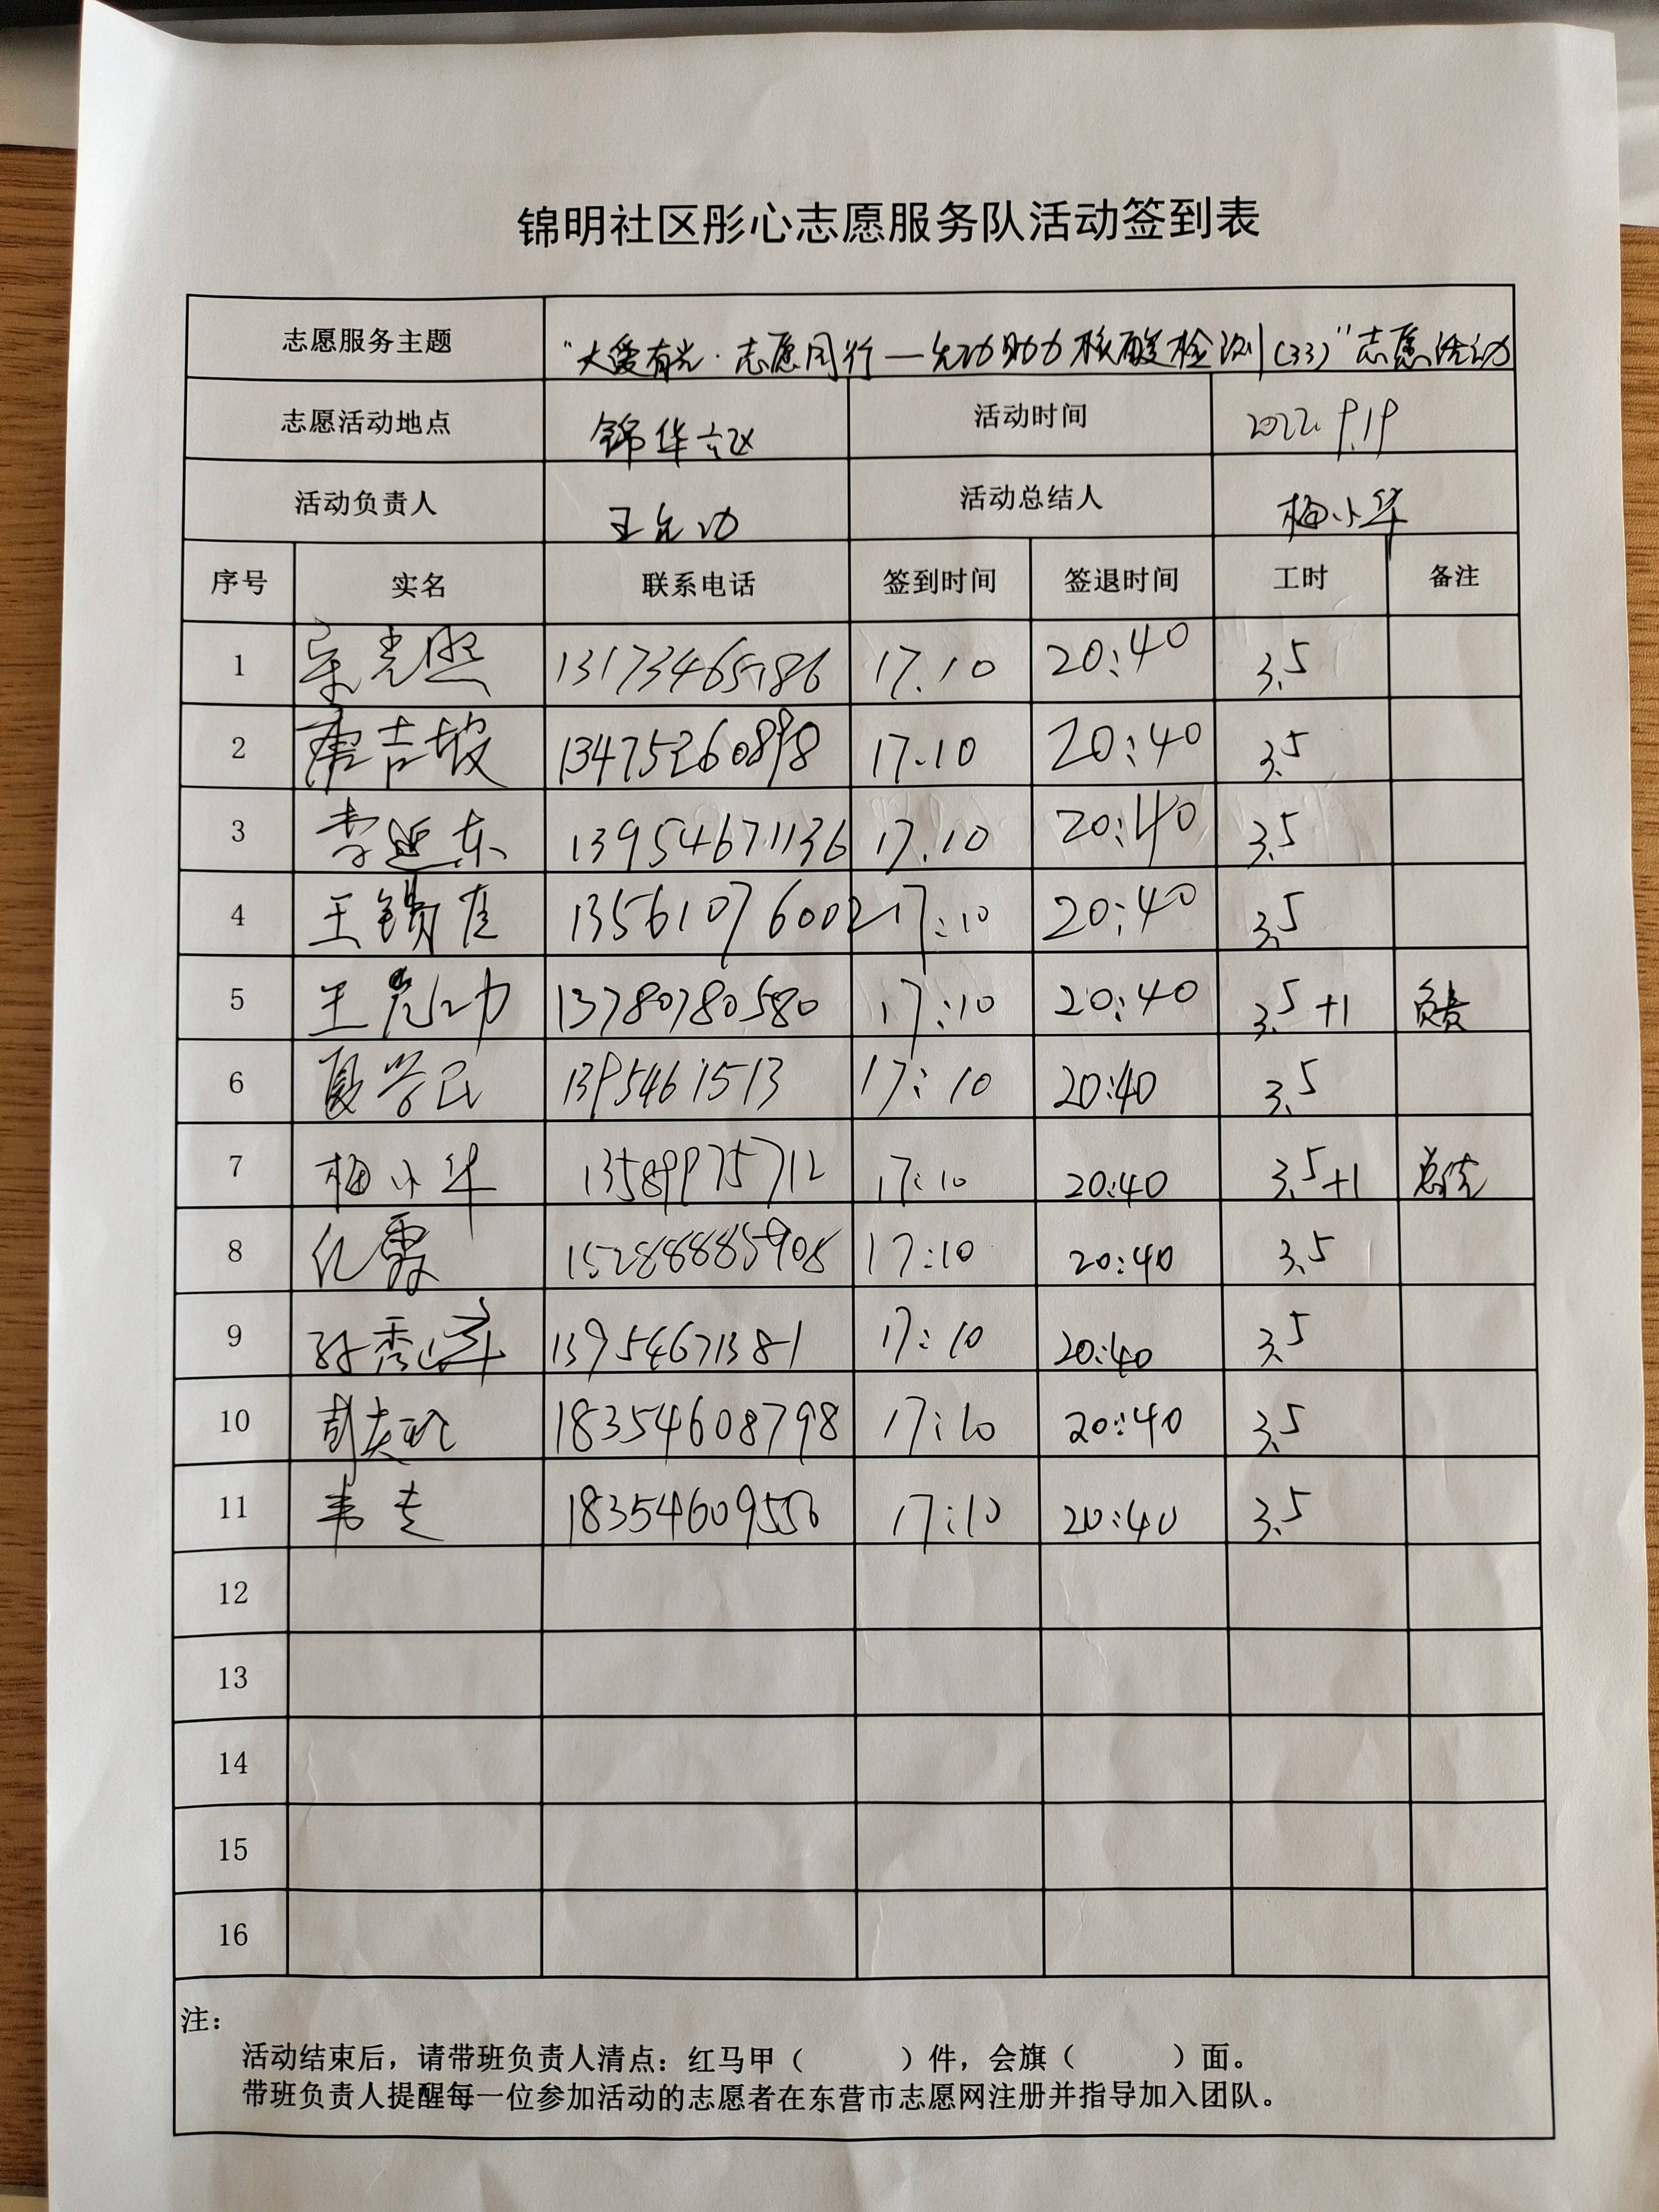 锦明社区彤心志愿服务队活动签到表
志愿服务主题 "大爱有光·志愿同行—允功助力核酸检测(33)"志愿活动
志愿活动地点 锦华六区 活动时间 2022.9.19
活动负责人 王允功 活动总结人 梅小华
序号 实名 联系电话 签到时间 签退时间 工时 备注
1 宋光照 13173465786 17.10 20:40 3.5
2 唐吉坡 13475260898 17.10 20:40 3.5
3 李延东 13954671136 17.10 20:40 3.5
4 王锡 13561076002 17:10 20:40 3.5
5 王允功 13780780580 17:10 20:40 3.5+1 负责
6 夏学民 1395461513 17:10 20:40 3.5
7 梅小华 13589975712 17:10 20:40 3.5+1 总结
8 15288885908 17:10 20:40 3.5
9 孙秀 13954671381 17:10 20:40 3.5
10 18354608798 17:10 20:40 3.5
11 17:10 20:40 3.5
12
13
14
15
16
注：
活动结束后，请带班负责人清点：红马甲（ ）件，会旗（ ）面。
带班负责人提醒每一位参加活动的志愿者在东营市志愿网注册并指导加入团队。